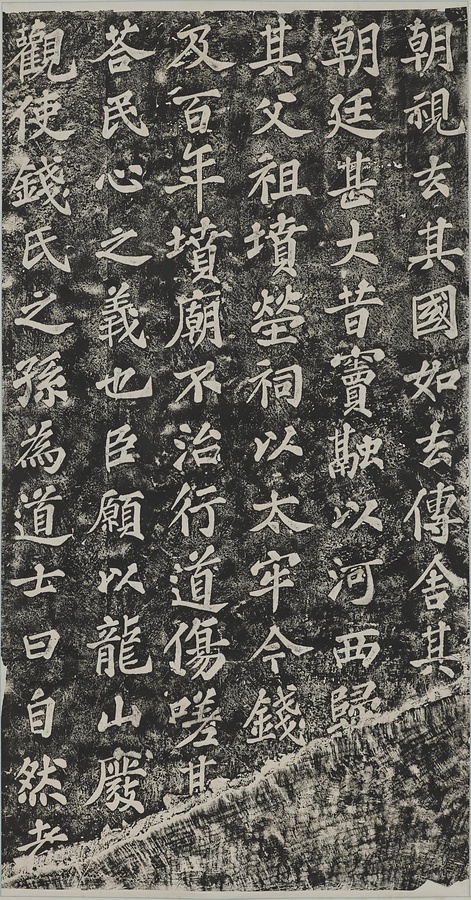 朝視去其國如去傳舍其
朝廷甚大昔竇融以河西歸
其父祖墳塋祠以太牢今錢
及百年墳廟不治行道傷嗟甚
荅民心之義也臣願以龍山廢
觀使錢氏之孫為道士曰自然者